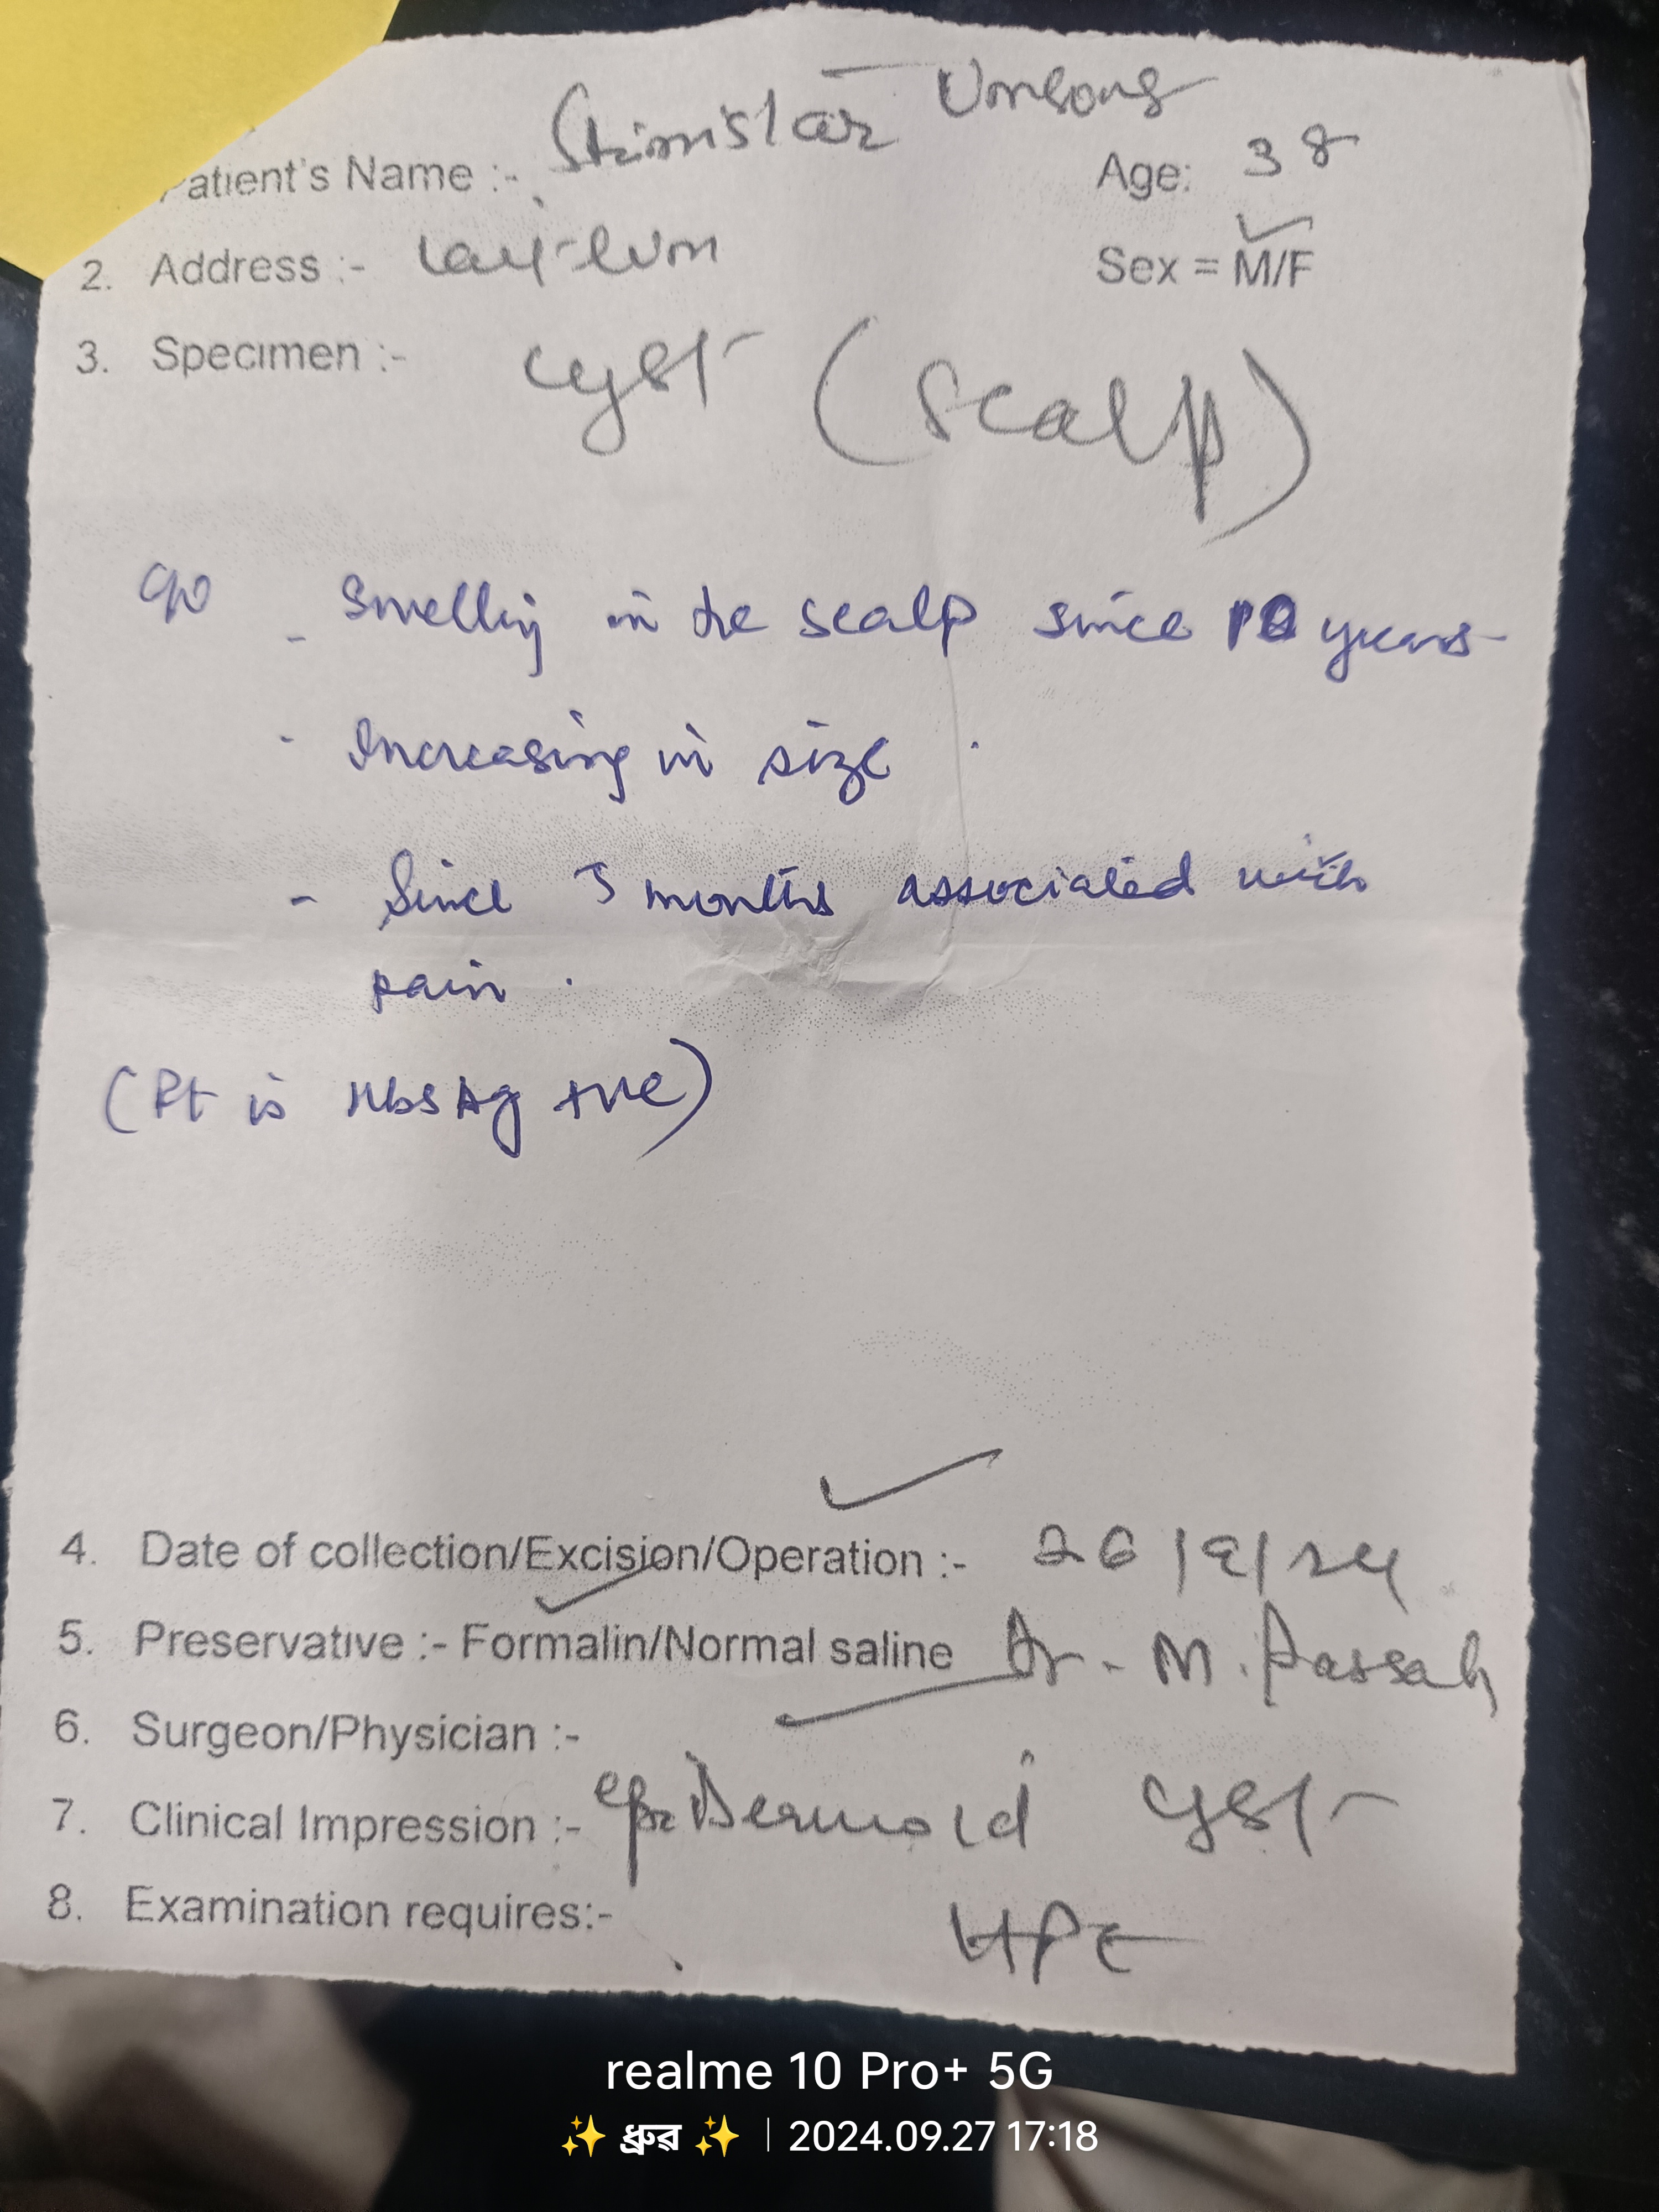 Patient's Name :- Umsong
Age: 38
2. Address :-
Sex = M/F
3. Specimen :- cyst (Scalp)
c/o - Swelling in the scalp since 10 years
- Increasing in size.
- Since 3 months associated with
pain.
(Pt is HbsAg +ve)
4. Date of collection/Excision/Operation :- 26/9/24
5. Preservative :- Formalin/Normal saline
Dr. M. Passah
6. Surgeon/Physician :-
7. Clinical Impression :- epiDermoid cyst
8. Examination requires:- HPE
realme 10 Pro+ 5G
✨ ধ্ৰুৱ ✨ | 2024.09.27 17:18